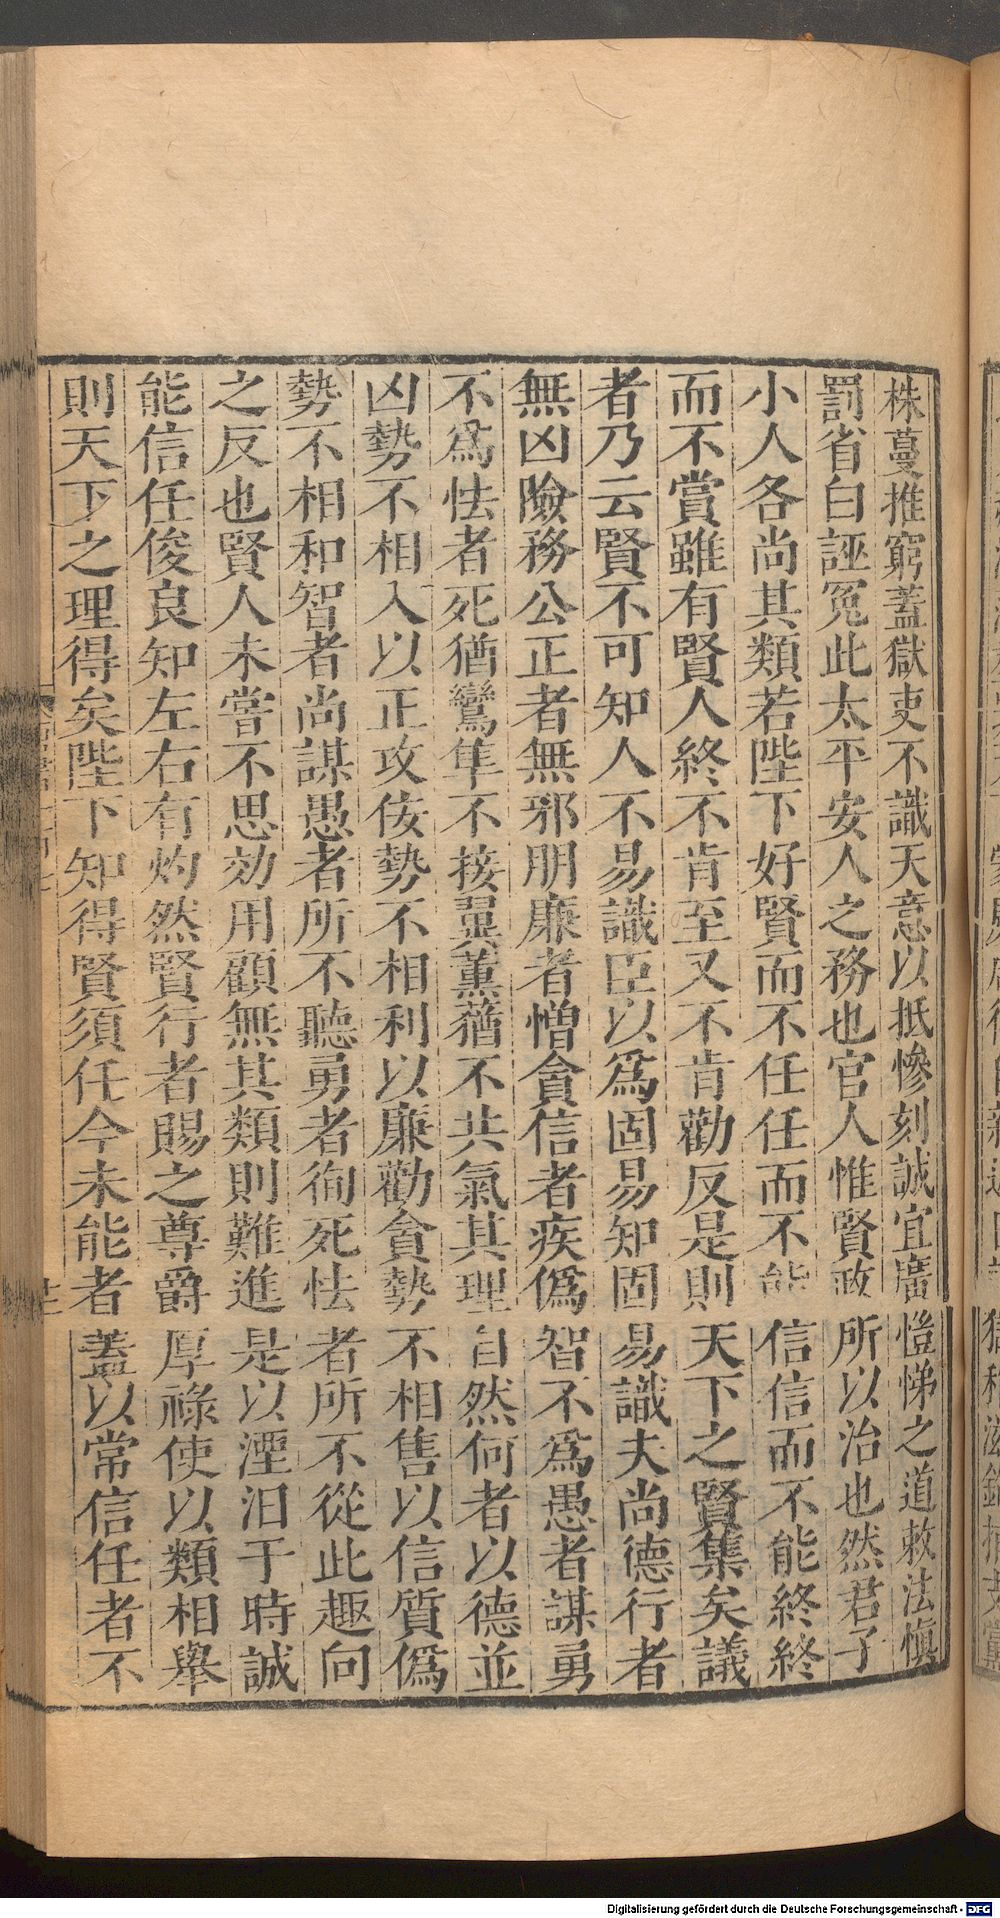 株蔓推窮蓋獄吏不識天意以抵慘刻誠宜廣愷悌之道敕法慎
罰省白誣冤此太平安人之務也官人惟賢政所以治也然君子
小人各尚其類若陛下好賢而不任任而不能信信而不能終終
而不賞雖有賢人終不肯至又不肯勸反是則天下之賢集矣議
者乃云賢不可知人不易識臣以爲固易知固易識夫尚德行者
無凶險務公正者無邪朋廉者憎貪信者疾僞智不爲愚者謀勇
不爲怯者死猶鸞隼不接翼薰蕕不共氣其理自然何者以德並
凶勢不相入以正攻佞勢不相利以廉勸貪勢不相售以信質僞
勢不相和智者尚謀愚者所不聽勇者徇死怯者所不從此趣向
之反也賢人未嘗不思効用顧無其類則難進是以湮汩于時誠
能信任俊良知左右有灼然賢行者賜之尊爵厚祿使以類相舉
則天下之理得矣陛下知得賢須任今未能者蓋以常信任者不
Digitalisierung gefördert durch die Deutsche Forschungsgemeinschaft - DFG